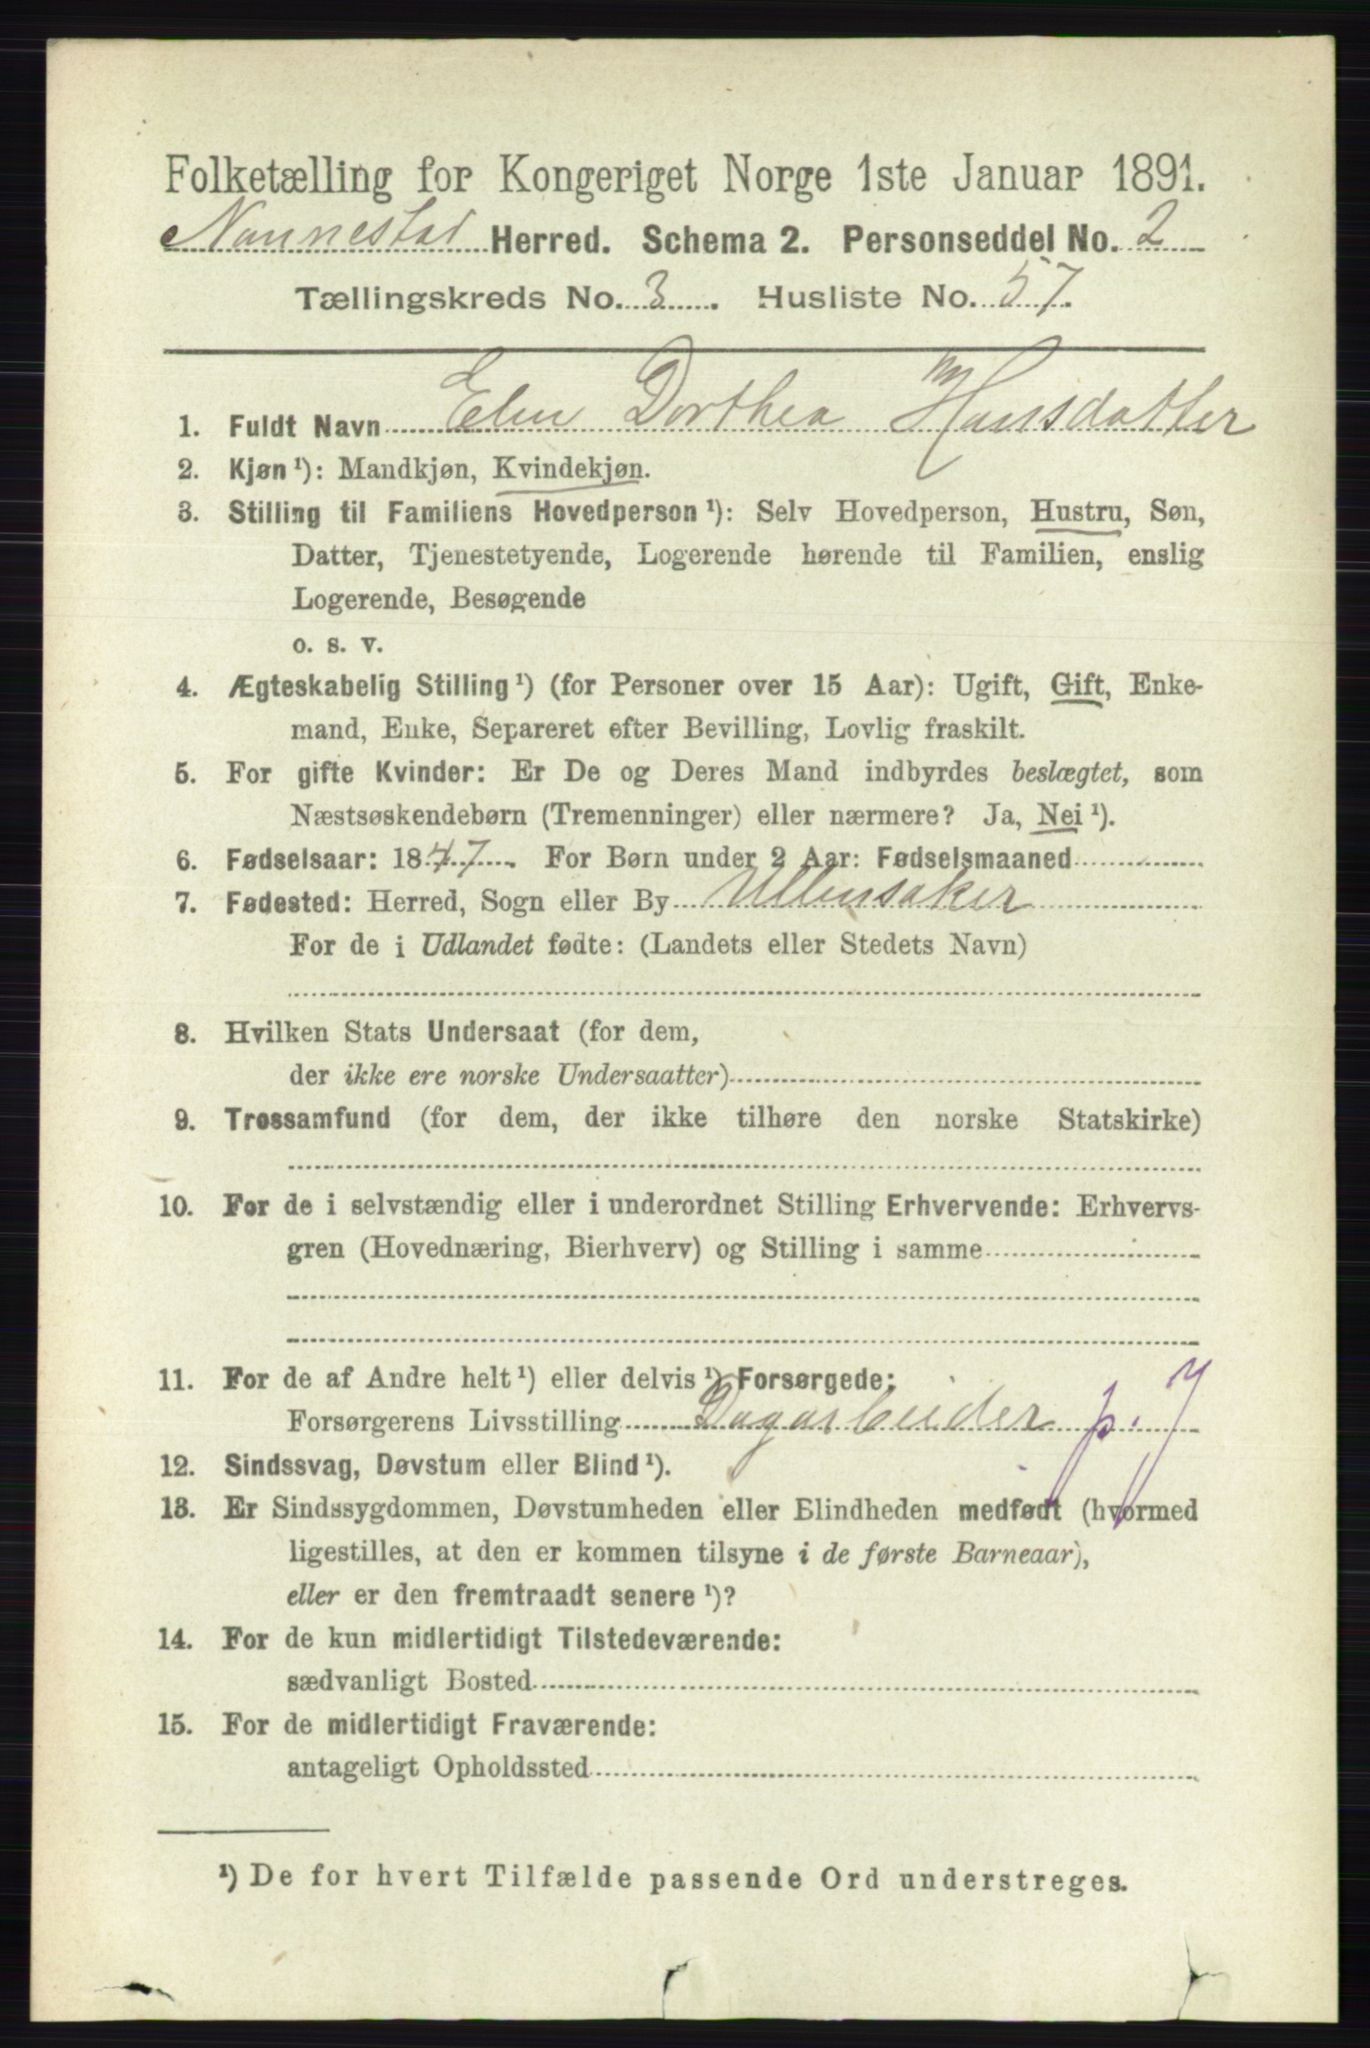 Folketælling for Kongeriget Norge 1ste Januar 1891.
Nannestad Herred. Schema 2. Personseddel No. 2
Tællingskreds No. 3. Husliste No. 57.
1. Fuldt Navn Elen Dorthea Hansdatter
2. Kjøn ¹): Mandkjøn, Kvindekjøn.
3. Stilling til Familiens Hovedperson ¹): Selv Hovedperson, Hustru, Søn,
Datter, Tjenestetyende, Logerende hørende til Familien, enslig
Logerende, Besøgende
o. s. v.
4. Ægteskabelig Stilling ¹) (for Personer over 15 Aar): Ugift, Gift, Enke-
mand, Enke, Separeret efter Bevilling, Lovlig fraskilt.
5. For gifte Kvinder: Er De og Deres Mand indbyrdes beslægtet, som
Næstsøskendebørn (Tremenninger) eller nærmere? Ja, Nei ¹).
6. Fødselsaar: 1847. For Børn under 2 Aar: Fødselsmaaned
7. Fødested: Herred, Sogn eller By Ullensaker
For de i Udlandet fødte: (Landets eller Stedets Navn)
8. Hvilken Stats Undersaat (for dem,
der ikke ere norske Undersaatter)
9. Trossamfund (for dem, der ikke tilhøre den norske Statskirke)
10. For de i selvstændig eller i underordnet Stilling Erhvervende: Erhvervs-
gren (Hovednæring, Bierhverv) og Stilling i samme
11. For de af Andre helt ¹) eller delvis ¹) Forsørgede:
Forsørgerens Livsstilling Dagarbeider p. y
12. Sindssvag, Døvstum eller Blind ¹).
13. Er Sindssygdommen, Døvstumheden eller Blindheden medfødt (hvormed
ligestilles, at den er kommen tilsyne i de første Barneaar),
eller er den fremtraadt senere ¹)?
14. For de kun midlertidigt Tilstedeværende:
sædvanligt Bosted
15. For de midlertidigt Fraværende:
antageligt Opholdssted
¹) De for hvert Tilfælde passende Ord understreges.